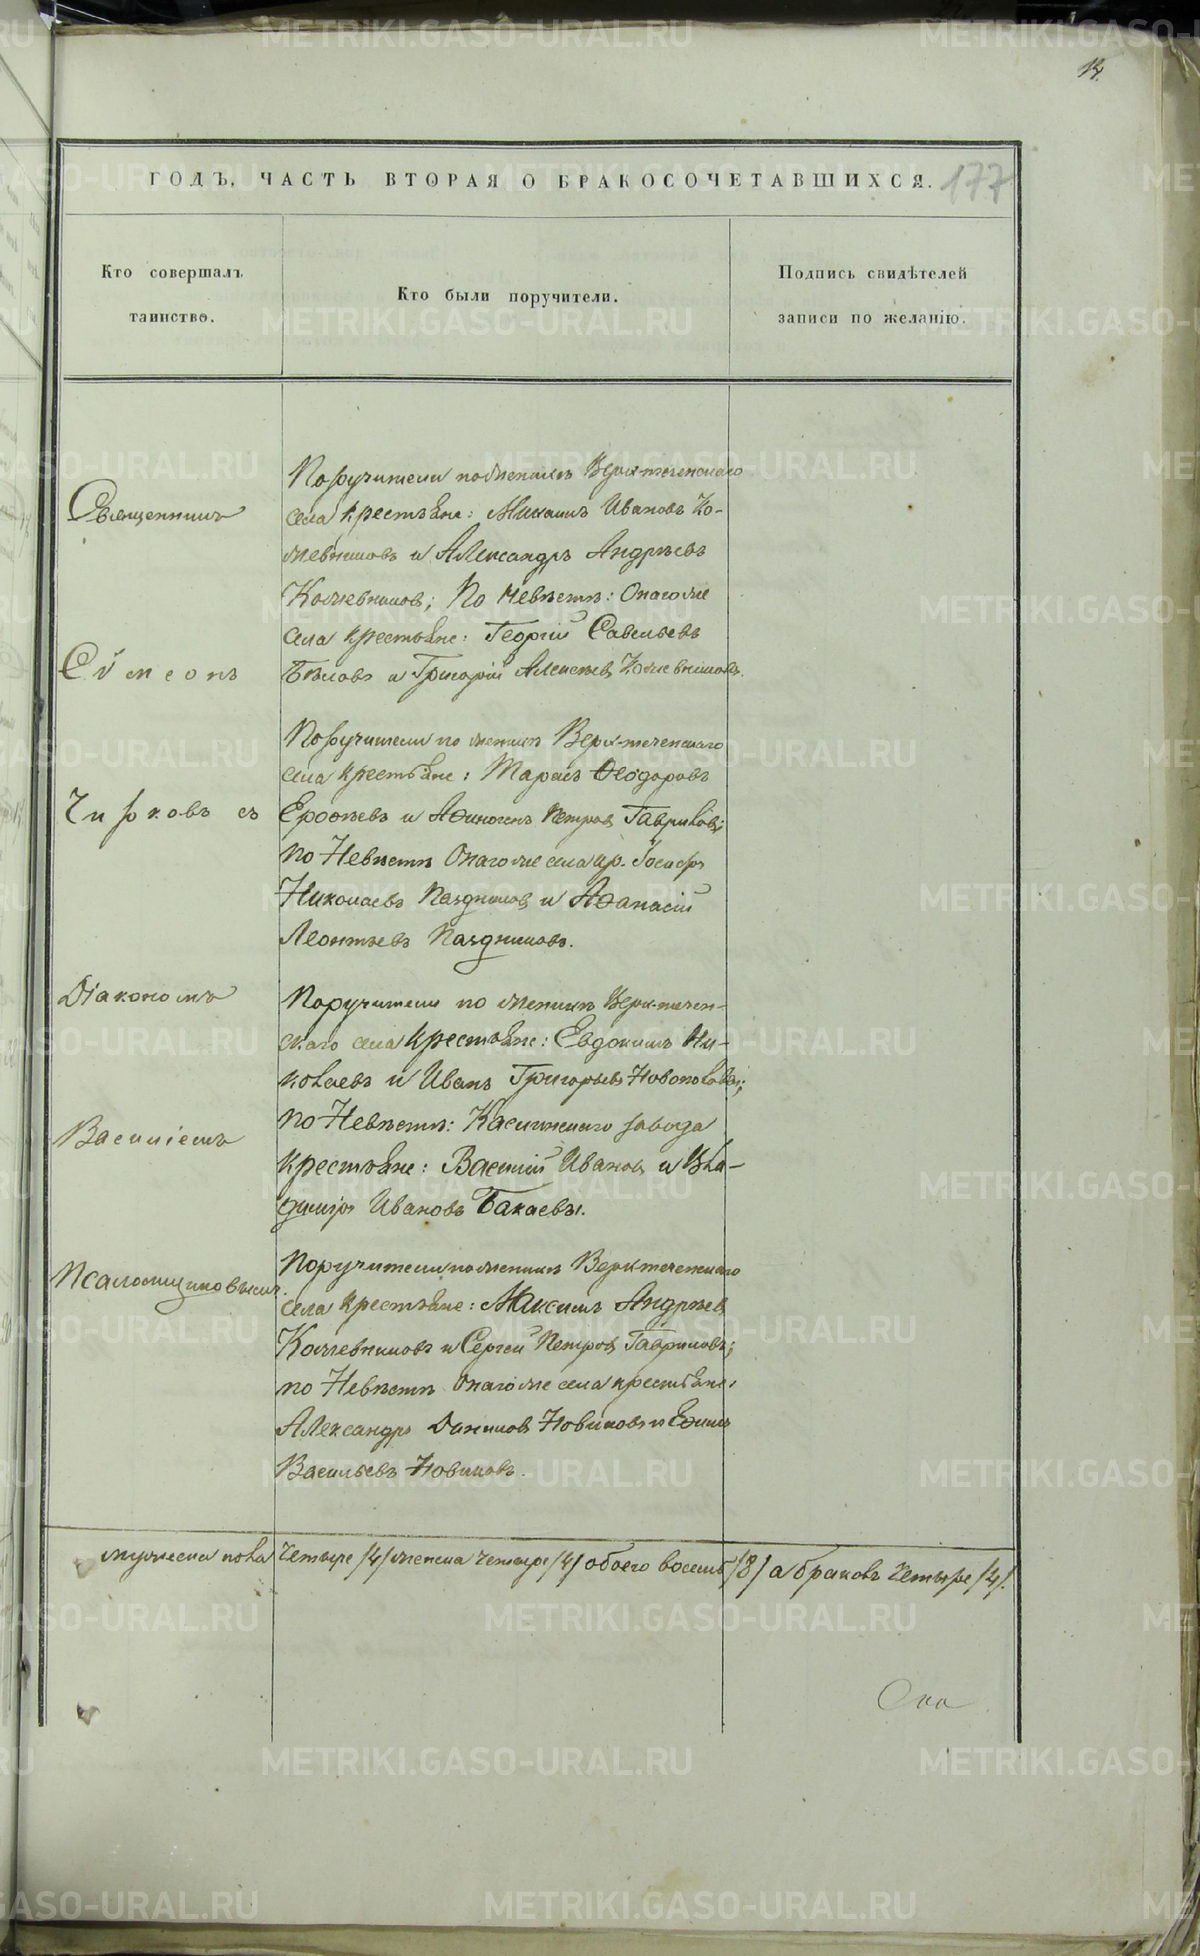 14.
ГОДЪ, ЧАСТЬ ВТОРАЯ О БРАКОСОЧЕТАВШИХСЯ.
177
Кто совершалъ
таинство.
Кто были поручители.
Подпись свидѣтелей
записи по желанію.
Священникъ
Сѵмеонъ
Чирковъ съ
Діакономъ
Василіемъ
Псаломщиковымъ.
Поручители по женихѣ Верх-теченскаго
села крестьяне: Михаилъ Ивановъ Ко-
жевниковъ и Александръ Андреевъ
Кожевниковъ; По Невѣстѣ: Онагоже
села крестьяне: Георгій Савельевъ
Бѣловъ и Григорій Алексѣевъ Кожевниковъ.
Поручители по женихѣ Верх-теченскаго
села крестьяне: Тарасъ Ѳеодоровъ
Ерофѣевъ и Аѳиногенъ Петровъ Гавриловъ;
по Невѣстѣ Онагоже села кр. Іосифъ
Николаевъ Паздниковъ и Аѳанасій
Леонтьевъ Паздниковъ.
Поручители по женихѣ Верх-течен-
скаго села крестьяне: Евдокимъ Ни-
колаевъ и Иванъ Григорьевъ
по Невѣстѣ: Каслинскаго завода
крестьяне: Василій Ивановъ и Вла-
диміръ Ивановъ Бакаевы.
Поручители по женихѣ Верхтеченскаго
села крестьяне: Максимъ Андреевъ
Кожевниковъ и Сергей Петровъ Гавриловъ;
по Невѣстѣ Онагоже села крестьяне:
Александръ Даниловъ Новиковъ и Ефимъ
Васильевъ Новиковъ.
мужеска пола четыре /4/ женска четыре /4/ обоего восемь /8/ а браковъ четыре /4/.
METRIKI.GASO-URAL.RU